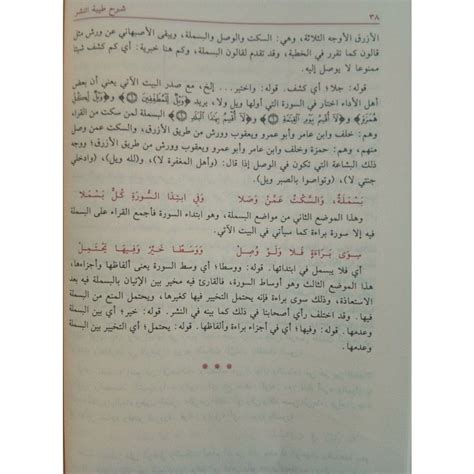 ٣٨ شرح طيبة النشر
الأزرق الأوجه الثلاثة، وهي: السكت والوصل والبسملة، ويبقى الأصبهاني عن ورش مثل
قالون كما تقرر في الخطبة، وقد تقدم لقالون بالبسملة، وكم هنا خبرية؛ أي كشف شيئا
ممنوعا لا يوصل إليه.
قوله: جلا؛ أي كشف. قوله: واختير... إلخ، مع صدر البيت الآتي يعني أن بعض
أهل الأداء اختار في السورة التي أولها ويل ولا، يريد ﴿وَيْلٌ لِلْمُطَفِّفِينَ ۝﴾ و﴿وَيْلٌ لِكُلِّ
هُمَزَةٍ﴾ و﴿لَا أُقْسِمُ بِيَوْمِ الْقِيَامَةِ ۝﴾ و﴿لَا أُقْسِمُ بِهَذَا الْبَلَدِ ۝﴾ البسملة لمن سكت من القراء
وهم: خلف وابن عامر وأبو عمرو ويعقوب وورش من طريق الأزرق، والسكت عمن وصل
منهم، وهم: حمزة وخلف وابن عامر وأبو عمرو ويعقوب وورش من طريق الأزرق، وأوجب
ذلك البشاعة التي تكون في الوصل إذا قال: (وأهل المغفرة لا)، و(لله ويل)، و(وادخلي
جنتي لا)، (وتواصوا بالصبر ويل).
بَسْمَلَةٌ، وَالسَّكْتُ عَمَّنْ وَصَلَا وَفِي ابْتِدَا السُّورَةِ كُلٌّ بَسْمَلَا
وهذا الموضع الثاني من مواضع البسملة، وهو ابتداء السورة فأجمع القراء على البسملة
فيه إلا سورة براءة كما سيأتي في البيت الآتي.
سِوَى بَرَاءَةٍ فَلَا وَلَوْ وُصِلْ وَوَسَطًا خَيِّرْ وَفِيهَا يَحْتَمِلْ
أي فلا يبسمل في ابتدائها. قوله: ووسطا؛ أي وسط السورة يعنى ألفاظها وأجزاءها،
هذا الموضع الثالث وهو أوساط السورة، فالقارئ فيه مخير بين الإتيان بالبسملة بعد
الاستعاذة، وذلك سوى براءة فإنه يحتمل التخيير فيها كغيرها، ويحتمل المنع من البسملة
فيها. وقد اختلف رأي أصحابنا في ذلك كما بينه في النشر. قوله: خير؛ أي بين البسملة
وعدمها. قوله: وفيها؛ أي في أجزاء براءة وألفاظها. قوله: يحتمل؛ أي التخيير بين البسملة
وعدمها.
* * *